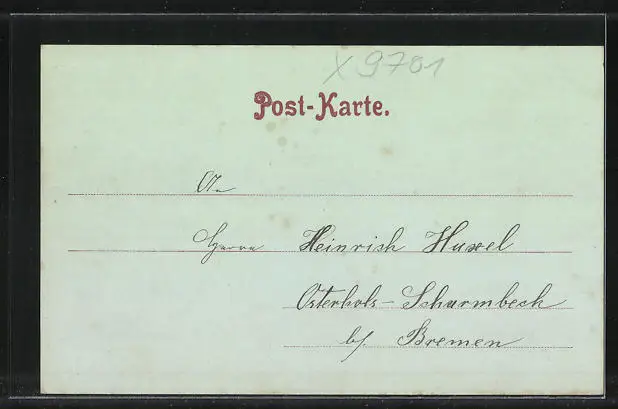 X 9701
Post-Karte.
An
Herrn Heinrich Huxel
Osterholz-Scharmbeck
b/. Bremen